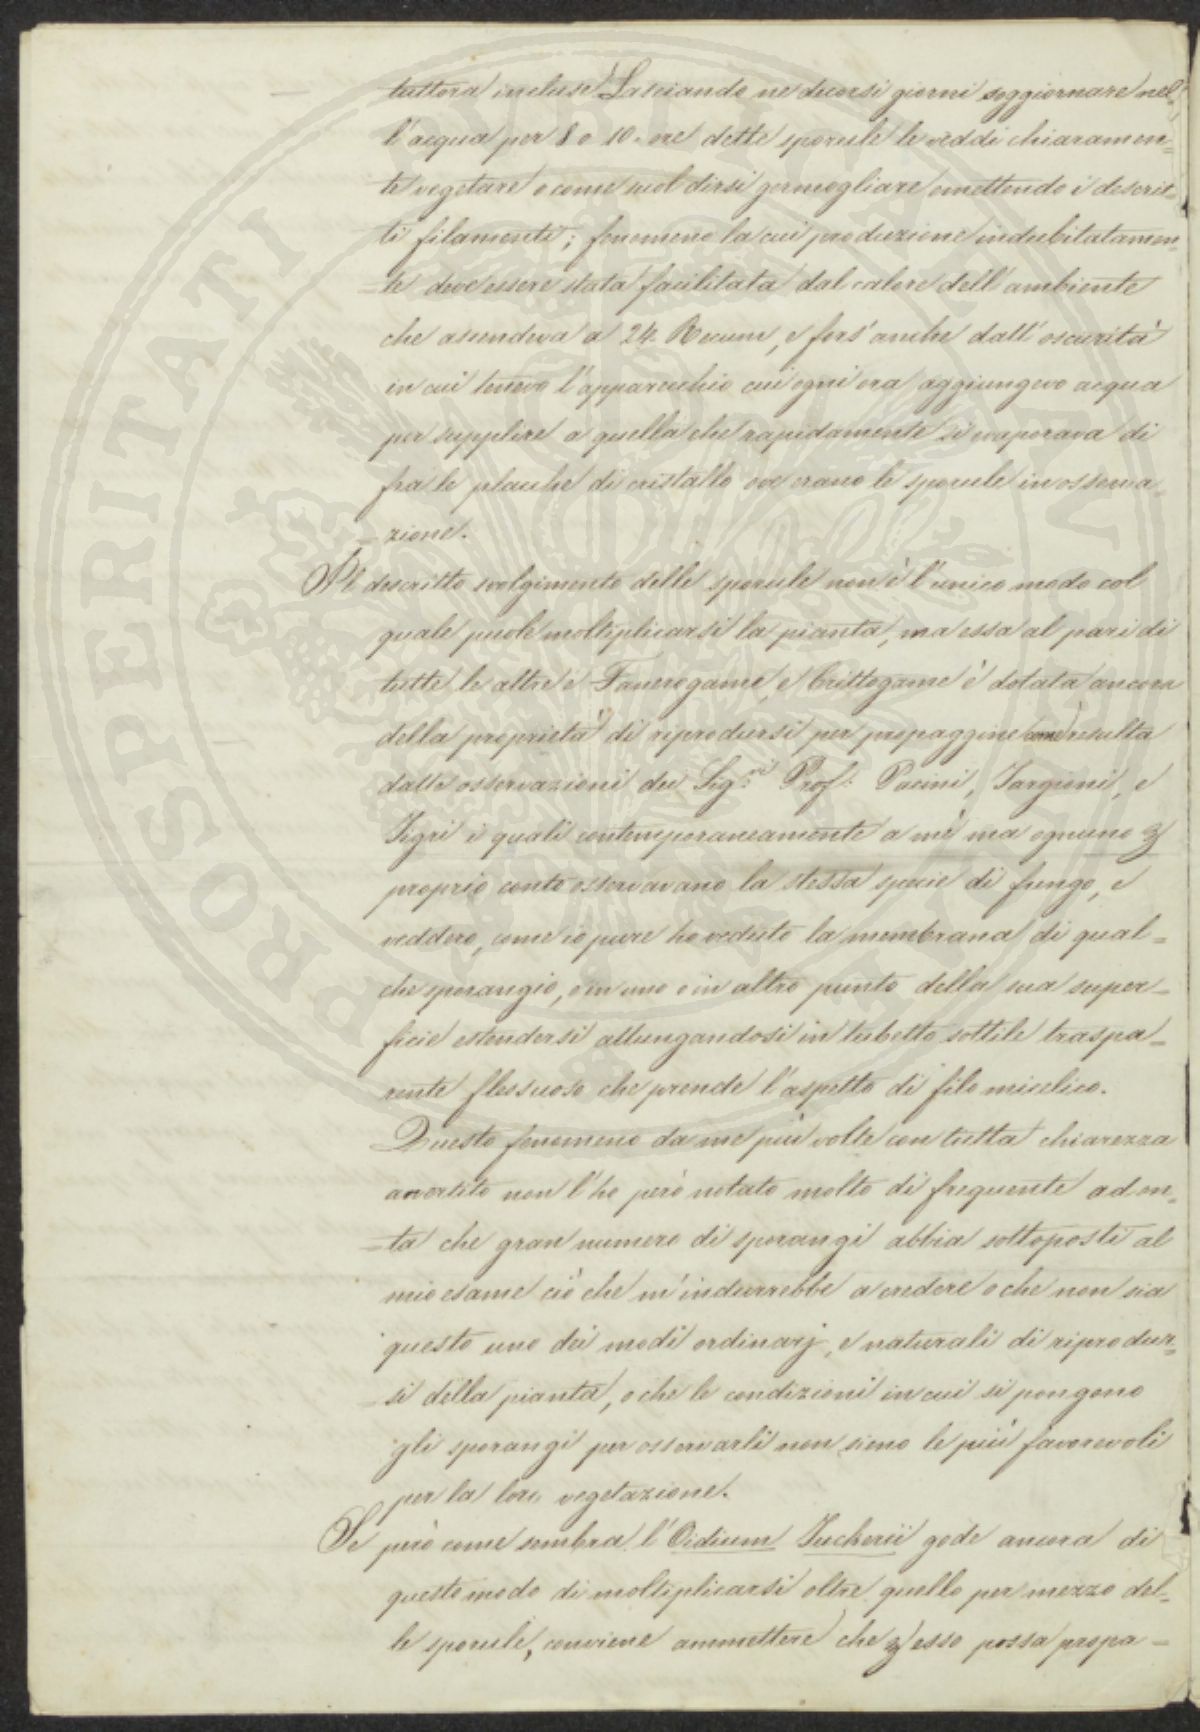 tuttora incluse. Lasciando ne' diversi giorni soggiornare nel-
l'acqua per 8 o 10. ore dette sporule le veddi chiaramen=
te vegetare o come suol dirsi germogliare emettendo i descrit=
ti filamenti; fenomeno la cui produzione indubitatamen=
=te deve essere stata facilitata dal calore dell'ambiente
che ascendeva a 24. Reaum, e fors'anche dall'oscurità
in cui tenevo l'apparecchio cui ogni ora aggiungevo acqua
per supplire a quella che rapidamente si evaporava di
fra le placche di cristallo ove erano le sporule in osserva=
=zione.
Il descritto svolgimento delle sporule non è l'unico modo col
quale puole moltiplicarsi la pianta, ma essa al pari di
tutte le altre e Fanerogame, e Crittogame è dotata ancora
della proprietà di riprodursi per propaggine come resulta
dalle osservazioni dei Sig.ri Prof: Pacini, Targioni, e
Tigri i quali contemporaneamente a mè ma ognuno p
proprio conto osservavano la stessa specie di fungo, e
veddero, come io pure ho veduto la membrana di qual=
che sporangio, o in uno o in altro punto della sua super=
ficie estendersi allungandosi in tubetto sottile traspa=
rente flessuoso che prende l'aspetto di filo micelico.
Questo fenomeno da me più volte con tutta chiarezza
avvertito non l'ho però notato molto di frequente ad on=
=ta che gran numero di sporangi abbia sottoposti al
mio esame ciò che m'indurrebbe a credere o che non sia
questo uno dei modi ordinarj, e naturali di riprodur=
=si della pianta, o che le condizioni in cui si pongono
gli sporangi per osservarli non sieno le più favorevoli
per la loro vegetazione.
Se però come sembra l'Oidium Tuckerii gode ancora di
questo modo di moltiplicarsi oltre quello per mezzo del=
le sporule, conviene ammettere che p esso possa propa=
PROSPERITATI PUBLICAE AUGENDAE